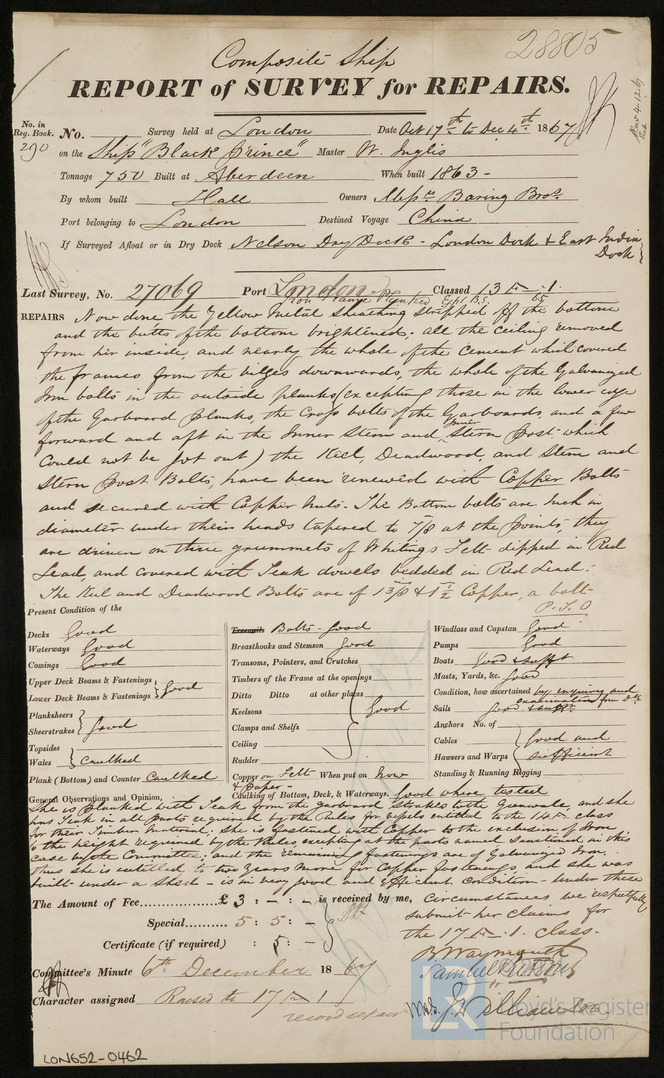 28805
Composite Ship
REPORT of SURVEY for REPAIRS.
Rec 4.12.67
No. in Reg. Book. No. Survey held at London Date Oct 17th to Dec 4th 1867
290 on the Ship "Black Prince" Master W. Inglis
Tonnage 750 Built at Aberdeen When built 1863 -
By whom built Hall Owners Messrs Baring Bros.
Port belonging to London Destined Voyage China
If Surveyed Afloat or in Dry Dock Nelson Dry Dock - London Dock & East India Dock
Last Survey, No. 27069 Port London Classed 13 A 1
REPAIRS Now done the Yellow Metal Sheathing stripped off the bottom
and the butts of the bottom brightened: all the ceiling removed
from her inside, and nearly the whole of the cement which covered
the frames from the bilges downwards, the whole of the Galvanized
Iron bolts in the outside planks (excepting those in the lower edge
of the Garboard planks, the Cross bolts of the Garboards, and a few
forward and aft in the Inner Stem and Inner Stern Post which
could not be got out) the Keel, Deadwood, and Stem and
Stern Post Bolts, have been renewed with Copper Bolts
and secured with Copper Nuts. The Bottom bolts are Inch in
diameter under their heads tapered to 7/8 at the points, they
are driven on three grummets of Whitings Felt dipped in Red
Lead, and covered with Teak dowels bedded in Red Lead:
The Keel and Deadwood Bolts are of 1 3/8 & 1 1/2 Copper, a bolt
P.T.O
Present Condition of the
Decks Good
Waterways Good
Comings Good
Upper Deck Beams & Fastenings
Lower Deck Beams & Fastenings } Good
Planksheers
Sheerstrakes } Good
Topsides
Wales } Caulked
Plank (Bottom) and Counter Caulked
Treenails Bolts - Good
Breasthooks and Stemson Good
Transoms, Pointers, and Crutches
Timbers of the Frame at the openings
Ditto Ditto at other places
Keelsons Good
Clamps and Shelfs
Ceiling
Rudder
Copper on Felt & Paper - When put on Now
Caulking of Bottom, Deck, & Waterways. Good where tested
Windlass and Capstan Good
Pumps Good
Boats Good & sufft
Masts, Yards, &c. Good
Condition, how ascertained by inquiry and examination from Dk
Sails Good & sufft
Anchors No. of
Cables
Hawsers and Warps
Standing & Running Rigging } Good and sufficient
General Observations and Opinion,
She is Planked with Teak from the garboard Strakes to the Gunwale, and she
has Teak in all parts required by the Rules for vessels entitled to the 14 A class
for their Timber Material, she is fastened with Copper to the exclusion of Iron
to the height required by the Rules excepting at the parts named Sanctioned in this
case by the Committee; and the remaining fastenings are of Galvanized Iron,
thus she is entitled to two years more for Copper fastenings, and she was
built under a Shed - is in very good and Efficient condition - under these
circumstances we respectfully
submit her claims for
the 17 A. 1. class.
The Amount of Fee £ 3 : - : - is received by me,
Special 5 : 5 : -
Certificate (if required) : 5 : -
B Waymouth
Committee's Minute 6th December 1867
Character assigned Raised to 17 A 1
LR
Lloyd's Register
Foundation
LON652-0462